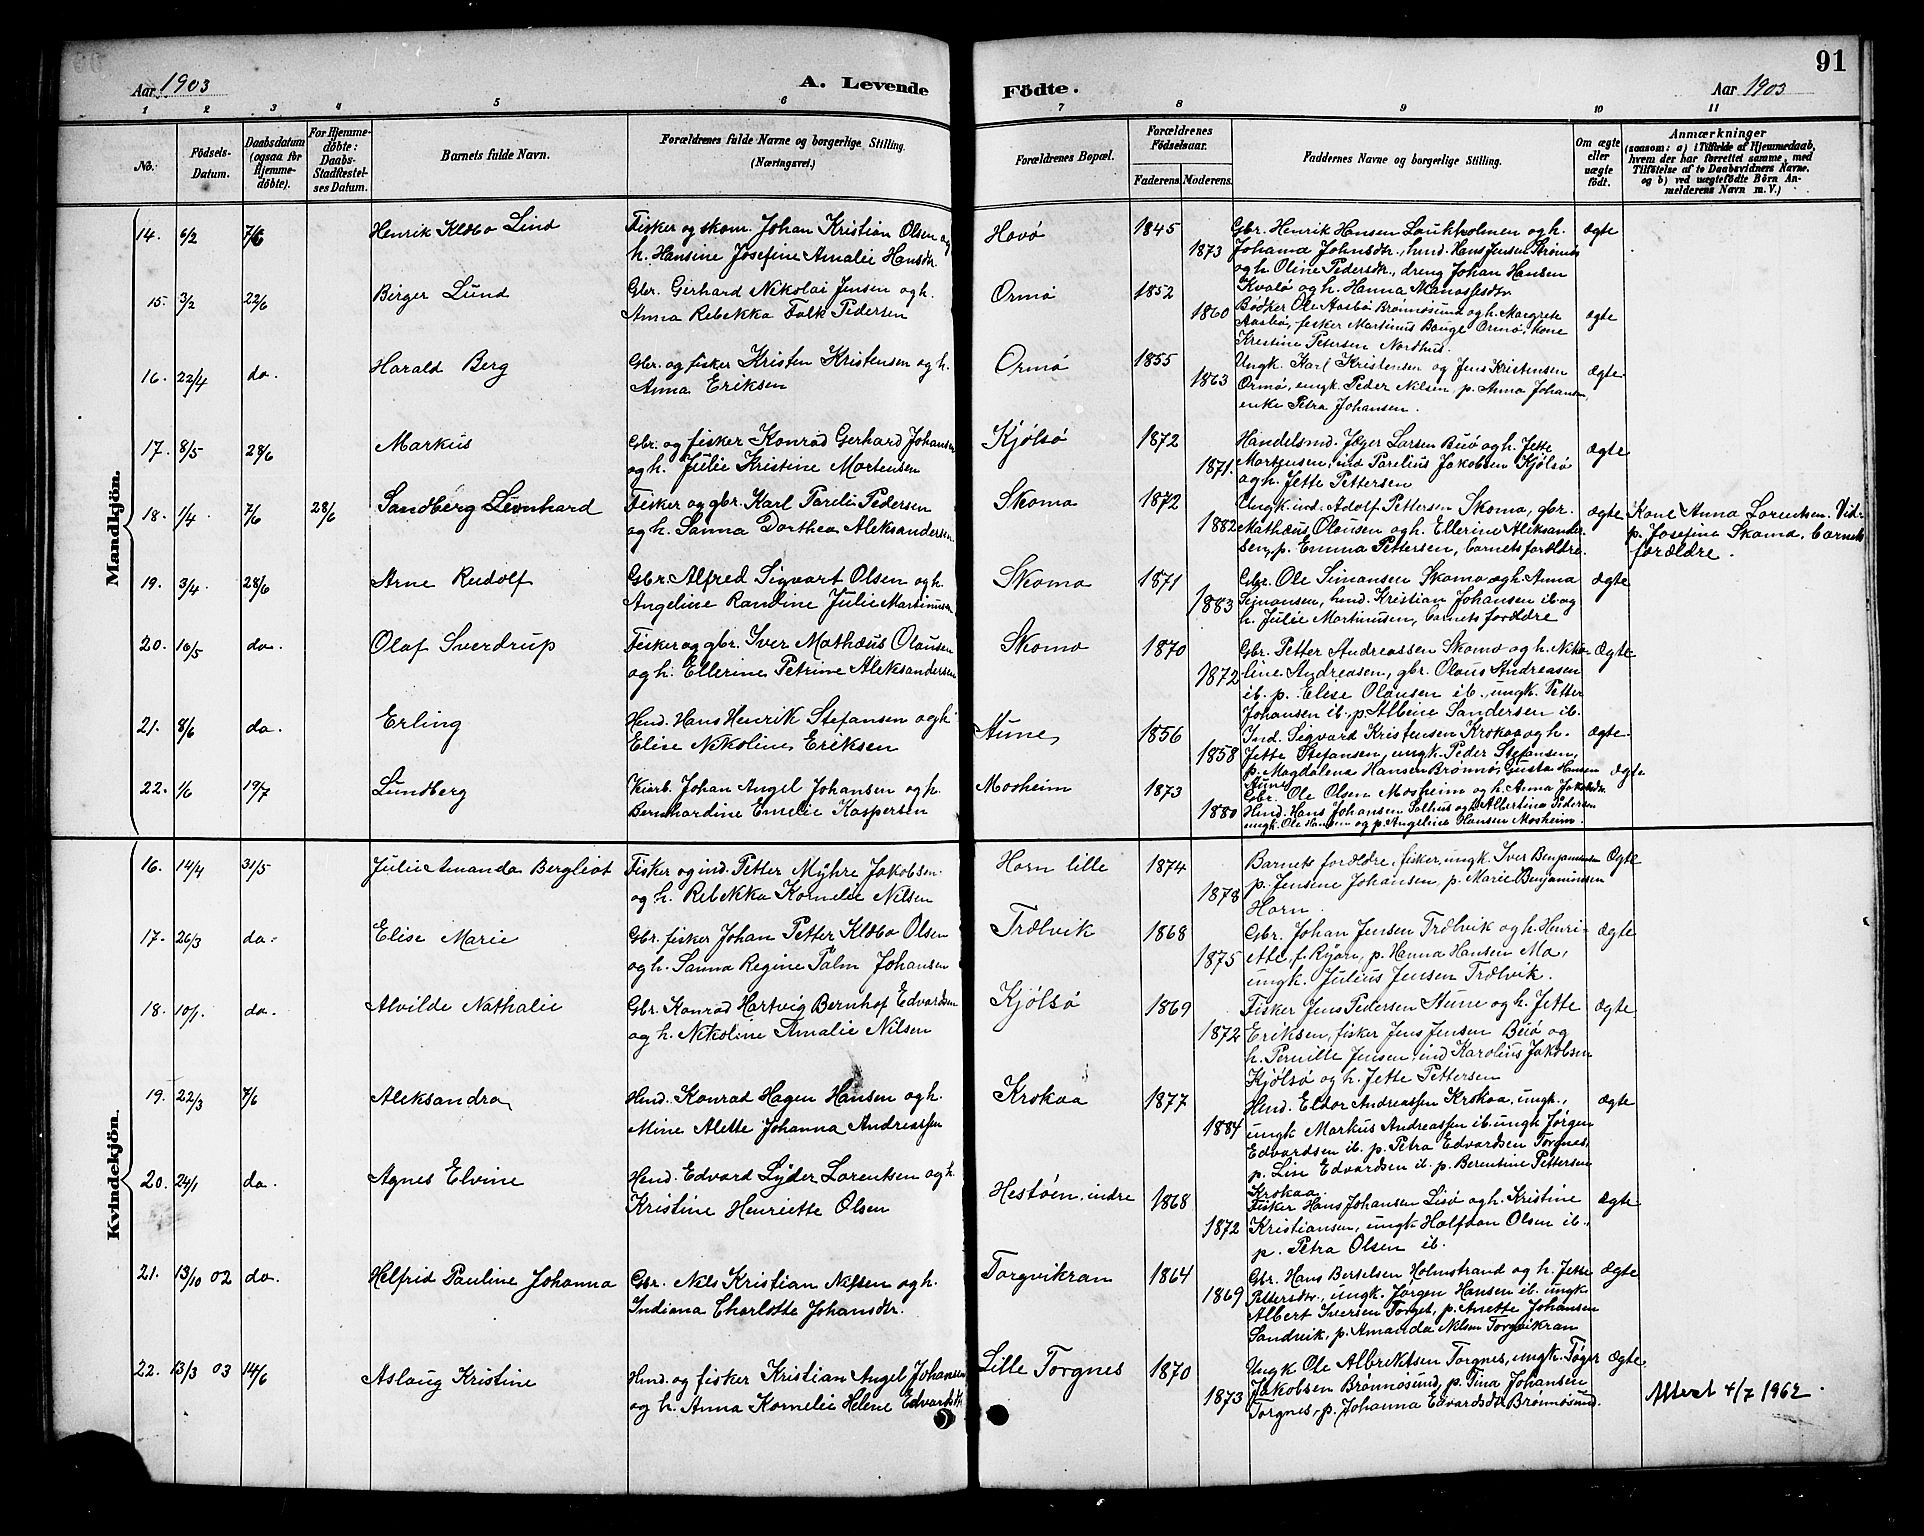 91
Aar 1903
A. Levende
Födte.
Aar 1903
1 2 3 4 5 6 7 8 9 10 11
No.
Födsels-
Datum.
Daabsdatum
(ogsaa for
Hjemme-
döbte).
For Hjemme-
döbte:
Daabs-
Stadfæstel-
ses Datum.
Barnets fulde Navn.
Forældrenes fulde Navne og borgerlige Stilling.
(Næringsvei.)
Forældrenes Bopæl.
Forældrenes
Födselsaar.
Faderens. Moderens.
Faddernes Navne og borgerlige Stilling.
Om ægte
eller
uægte
født.
Anmærkninger
(saasom: a) i Tilfælde af Hjemmedaab,
hvem der har forrettet samme, med
Tilföielse af to Daabsvidners Navne,
og b) ved uægtefödte Börn An-
melderens Navn m. V.)
Mandkjön.
14. 6/2 7/6 Henrik Klæbo Lind
Fisker og skom. Johan Kristian Olsen og
h. Hansine Josefine Amalie Hansdtr.
Havø 1845 1873
Gbr. Henrik Hansen Laukholmen og h.
Johanna Johnsdtr., hmd. Hans Jensen Strømøs
og h. Oline Pedersdtr., dreng Johan Hansen
Kvalø og h. Hanna Manassesdtr.
ægte
15. 3/2 22/6 Birger Lund
Gbr. Gerhard Nikolai Jensen og h.
Anna Rebekka Falk Pedersen
Ormø 1852 1860
Bødker Ole Aasbø Brønnøsund og h. Margrete
Aasbø, fisker Martinus Bauge Ormø, kone
Kristine Petersen Nordhus.
ægte
16. 22/4 do. Harald Berg
Gbr. og fisker Kristen Kristensen og h.
Anna Eriksen
Ormø 1855 1863
Ungk. Karl Kristensen og Jens Kristensen
Ormø, ungk. Peder Nilsen, p. Anna Johansen
enke Petra Johansen.
ægte
17. 8/5 28/6 Markus
Gbr. og fisker Konrad Gerhard Johansen
og h. Julie Kristine Mortensen
Kjølsø 1872 1871.
Handelsmd. Jøger Larsen Buø og h. Jette
Mortensen, ind. Parelius Jakobsen Kjølsø
og h. Jette Pettersen
ægte
18. 1/4 7/6 28/6 Sandberg Leonhard
Fisker og gbr. Karl Pareli Pedersen
og h. Sanna Dorthea Aleksandersen
Skomo 1872 1882
Ungk. ind. Adolf Pettersen Skomo, gbr.
Mathæus Olausen og h. Ellerine Aleksander-
sen, p. Emma Pettersen, barnets forældre.
ægte
Kone Anna Lorentsen. Vid.
p. Josefine Skomo. barnets
forældre.
19. 3/4 28/6 Arne Rudolf
Gbr. Alfred Sigvart Olsen og h.
Angeline Randine Julie Martinusen
Skomo 1871 1883
Gbr. Ole Simonsen Skomo og h. Anna
Simonsen, hmd. Kristian Johansen ib og
h. Julie Martinusen, barnets forældre
ægte
20. 16/5 do. Olaf Sverdrup
Fisker og gbr. Iver Mathæus Olausen
og h. Ellerine Petrine Aleksandersen
Skomo 1870 1872
Gbr. Petter Andreassen Skomo og h. Niko-
line Andreasen, gbr. Olaus Andreasen
ib. p. Elise Olausen ib., ungk. Petter
Johansen ib. p. Albine Sandersen ib.
Ægte
21. 8/6 do. Erling
Hmd. Hans Henrik Stefansen og h.
Elise Nikoline Eriksen
Aune 1856 1858
Ind. Sigvard Kristensen Krokaa og h.
Jette Stefansen, ungk. Peder Stefansen,
p. Magdalena Hansen Brønnø, Gusta Hansen
Aune
ægte.
22. 1/6 19/7 Lundberg
Johan Angel Johansen og h.
Bernhardine Emelie Kaspersen
Mosheim 1873 1880
Gbr. Ole Olsen Mosheim og h. Anna Jakobsdtr.
Hmd. Hans Johansen Salhus og h. Albertina Pedersen
ungk. Ole Hansen og p. Angeline Hansen Mosheim.
ægte
Kvindekjön.
16. 14/4 31/5 Julie Amanda Bergliot
Fisker og ind. Petter Myhre Jakobsen
og h. Rebekka Kornelie Nilsen
Horn lille 1874 1878
Barnets forældre, fisker, ungk. Iver Benjaminsen
p. Jensine Johansen, p. Marie Benjaminsen
Horn.
Ægte
17. 26/3 do. Elise Marie
Gbr. fisker Johan Petter Klæbo Olsen
og h. Sanna Regine Palm Johansen
Trælvik 1868 1875
Gbr. Johan Jensen Trælvik og h. Henri-
ette, f. Ryan, p. Hanna Hansen Mo,
ungk. Julius Jensen Trælvik.
Ægte
18. 10/1. do. Alvilde Nathalie
Gbr. Konrad Hartvig Bernhof Edvardsen
og h. Nikoline Amalie Nilsen
Kjølsø 1869 1872
Fisker Jens Pedersen Aune og h. Jette
Eriksen, fisker Jens Jensen Buø og
h. Pernille Jensen, ind Karolius Jakobsen
Kjølsø og h. Jette Pettersen
Ægte
19. 22/3 7/6 Aleksandra
Hmd. Konrad Hagen Hansen og h.
Mine Alette Johanna Andreassen
Krokaa 1877 1884
Hmd. Eldor Andreassen Krokaa, ungk.,
ungk Markus Andreassen ib. ungk Jørgen
Edvardsen ib. p. Petra Edvardsen Torgnes,
p. Lise Edvardsen ib. p. Berentine Pettersen
Krokaa.
Ægte
20. 24/1 do. Agnes Elvine
Hmd. Edvard Lyder Lorentsen og h.
Kristine Henriette Olsen
Hestøen, indre 1868 1872
Fisker Hans Johansen Lisø og h. Kristine
Kristiansen, ungk. Halfdan Olsen ib.,
p. Petra Olsen ib.
Ægte
21. 13/10 02 do. Helfrid Pauline Johanna
Gbr. Nils Kristian Nilsen og h.
Indiana Charlotte Johansdtr.
Torgvikran 1864 1869
Gbr. Hans Berselsen Holmstrand og h. Jette
Pettersdtr., ungk. Jørgen Hansen ib. ungk.
Albert Iversen Torget, p. Anette Johansen
Sandvik, p. Amanda Nilsen Torgvikran
Ægte
22. 13/3 03 14/6 Aslaug Kristine
Hmd. og fisker Kristian Angel Johansen
og h. Anna Kornelie Helene Edvardsdtr.
Lille Torgnes 1870 1873
Ungk Ole Albrektsen Torgnes, ungk. Tøger
Jakobsen Brønnøsund, p. Tina Johansen
Torgnes, p. Johanna Edvardsdtr Brønnøsund.
Ægte
Attest 4/7 1962.